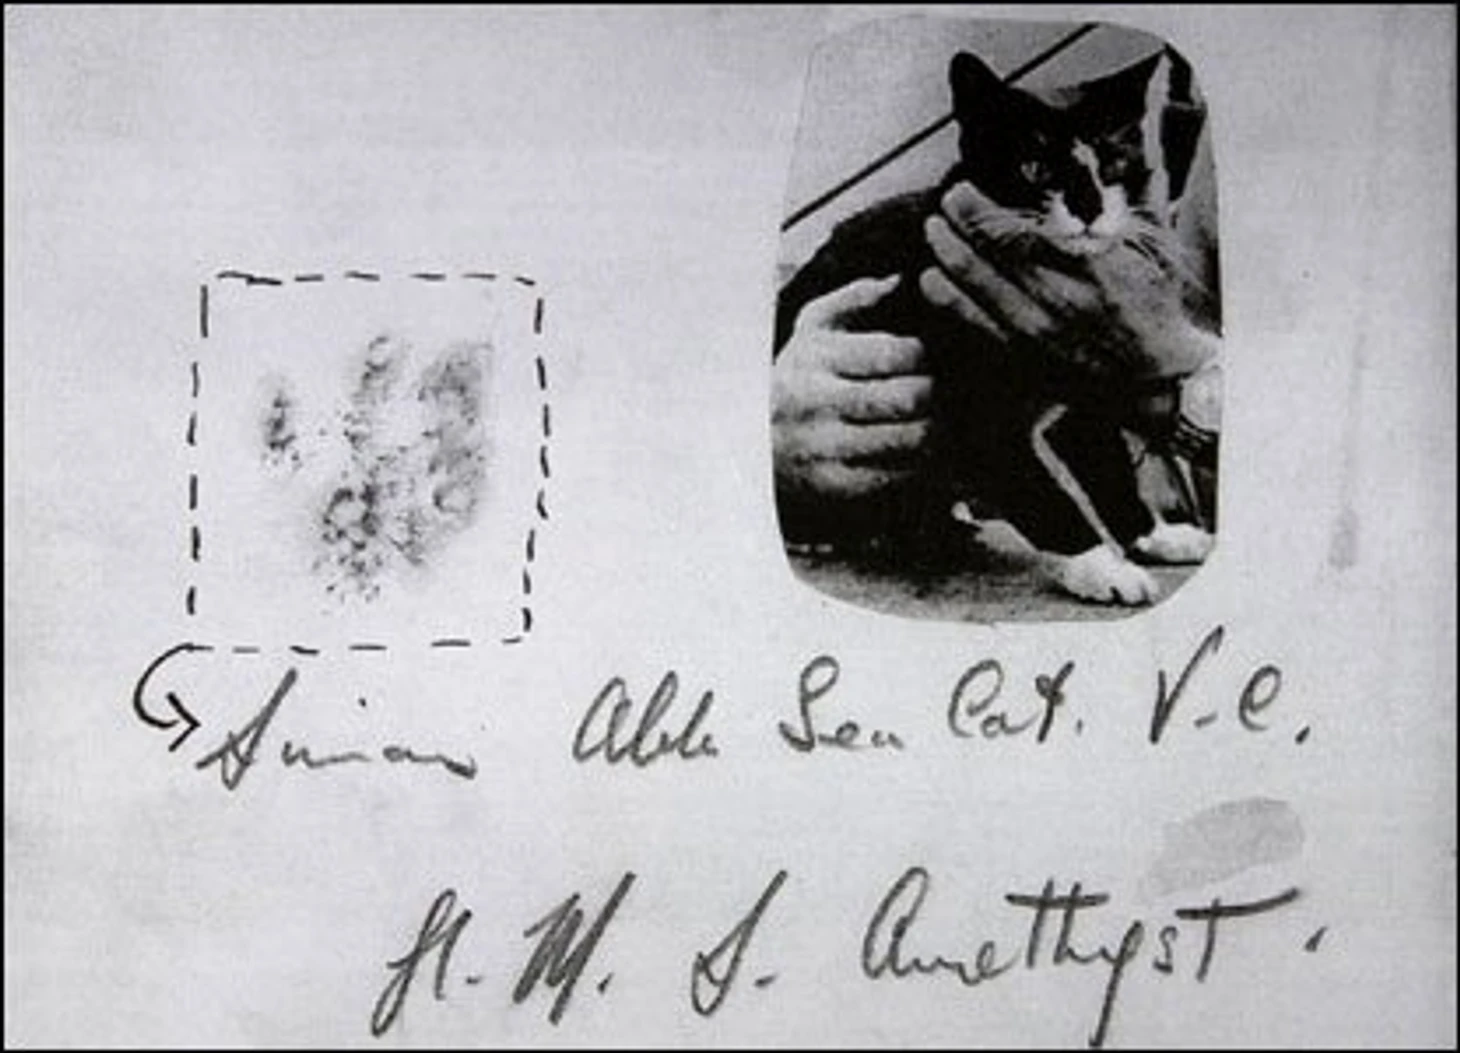 Simon Able Sea Cat. V.C.
H.M.S. Amethyst.